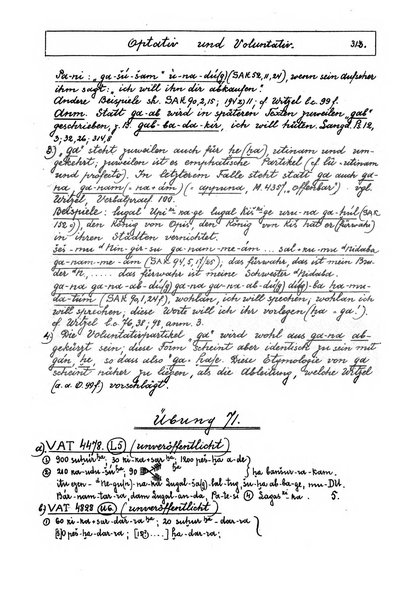 Optativ und Voluntativ. 313.
Pa-ni: „ga-šú-šam" ù-na-dú(g) (SAK 52, 11, 24), wenn sein Aufseher
ihm sagt: „ich will ihn dir abkaufen".
Andere Beispiele sh. SAK 90, 2, 15; cf Witzel l.c. 99 f.
Anm. Statt ga-ab wird in späteren Texten zuweilen „gab"
geschrieben, z.B. gab-ba-da-kir, ich will hüten.
3, 32, 26; 314, 8
3) „ga" steht zuweilen auch für he (ha) utinam und um-
gekehrt, zuweilen ist es emphatische Partikel (cf lū = utinam
und profecto). In letzterem Falle steht statt ga auch ga-
na, ga-nam (= na-ám) (= appuna, M. 435) „offenbar". vgl.
Witzel, Verbalpräf 100.
Beispiele: lugal Upi ki-ka-ge lugal kiš ki-ge uru-na ga-ḫul (SAK
152 9), den König von Opis, den König von Kiš hat er (fürwahr)
in ihren Städten vernichtet.
ga-nam-me-ám (SAK 94, 5, 17/25), das fürwahr, das ist mein Bru-
der ..... das fürwahr ist meine Schwester Nidaba.
ga-na ga-na-ab-dú(g) ga-na ga-na-ab-dú(g) dú(g)-ba ha-mu-
da-tum (SAK 90, 1, 24 f), wohlan, ich will sprechen, wohlan ich
will sprechen, diese Worte will ich ihr vorlegen (ha = ga!).
cf Witzel l.c. 76, 38; 98, anm. 3.
4) Die Voluntativpartikel „ga" wird wohl aus ga-na ab-
gekürzt sein; diese Form scheint aber identisch zu sein mit
gán, he, so dass also ga: ha/he. Diese Etymologie von ga
scheint näher zu liegen, als die Ableitung, welche Witzel
(a.a.O. 99 f) vorschlägt.
Übung 71.
a) VAT 4478. (L5) (unveröffentlicht)
① 900 suḫur ḫa, 30 ki-ka+sar ḫa, 1200 peš-ḫa a-de
② 210 ka-udu-šú ḫa; 90 ḫa
} ḫa banšur-ra-kam.
Bár-nam-tar-ra, dam Lugal-an-da, Pa-te-si ④ Lagaš ki-ka. 5.
b) VAT 4828 (U6) (unveröffentlicht)
① 60 ki-ka+sar-dar-ra ḫa; 20 suḫur ḫa-dar-ra